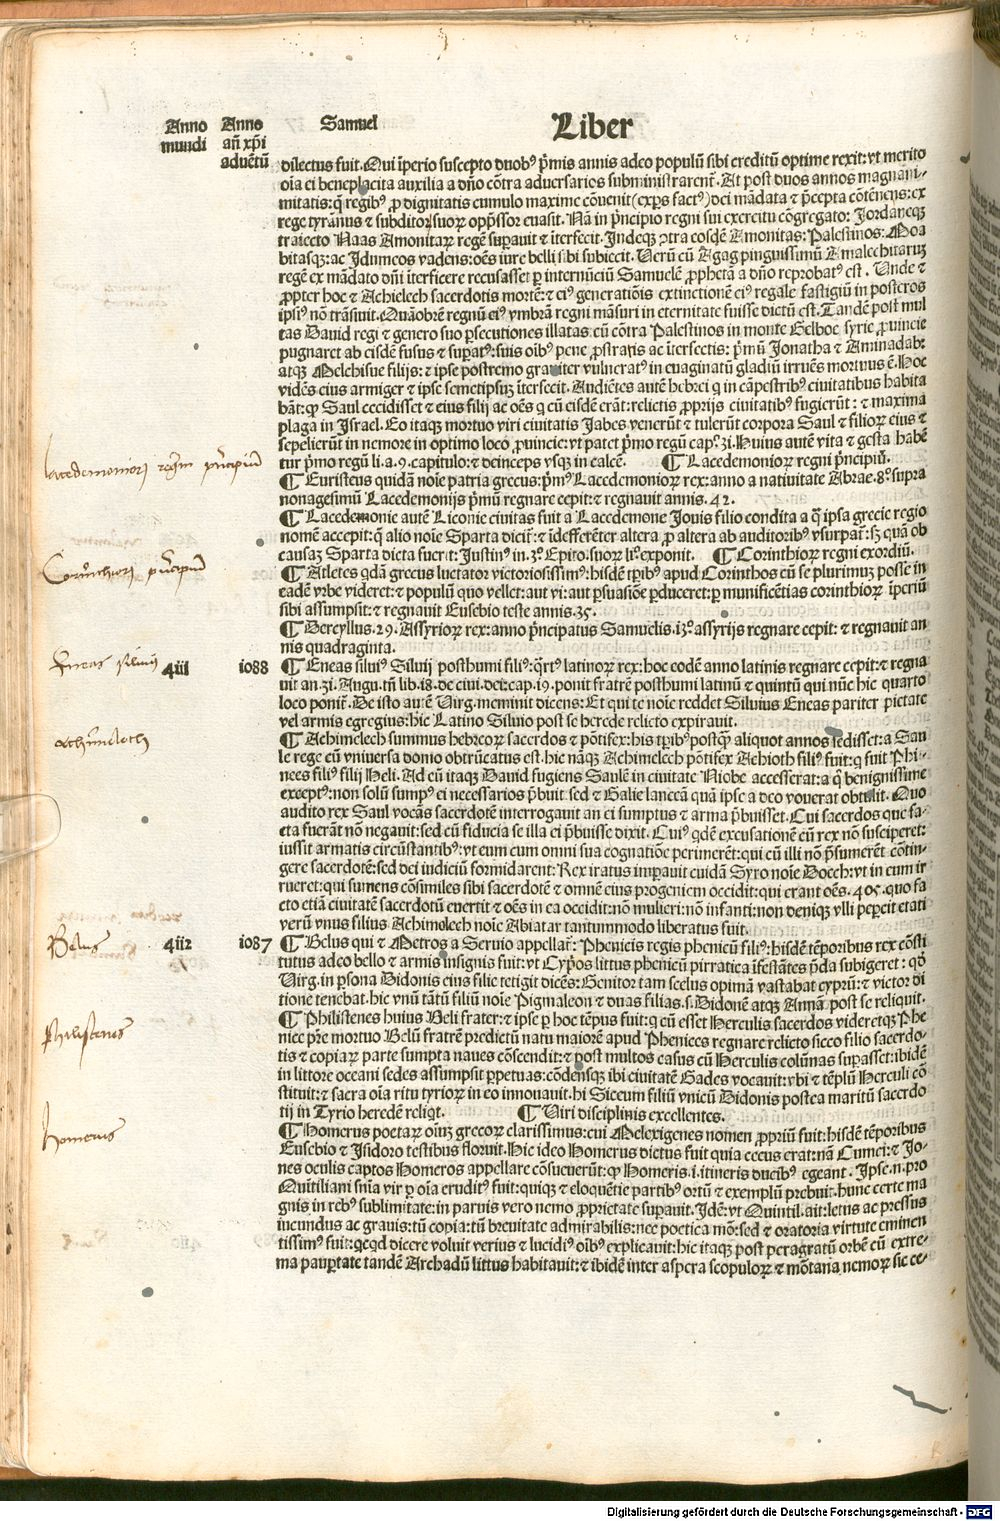 Anno mundi
Anno añ xp̃i aduẽtũ
Samuel
Liber
dilectus fuit. Qui ĩperio suscepto duobꝰ p̃mis annis adeo populũ sibi creditũ optime rexit: vt merito
oĩa ei beneplacita auxilia a dño cõtra aduersarios subministrarent. At post duos annos magnani-
mitatis: q̃ regibꝰ ꝓ dignitatis cumulo maxime cõuenit (exp̱s factꝰ) dei mãdata ⁊ p̃cepta cõtẽnens: ex
rege tyrãnus ⁊ subditoꝝ suoꝝ opp̃ssor euasit. Nã in p̃ncipio regni sui exercitu cõgregato: Jordaneqꝫ
traiecto Naas Amonitaꝝ regẽ sup̱auit ⁊ ĩterfecit. Indeqꝫ ꝯtra eosdẽ Amonitas: Palestinos: Moa
bitasqꝫ: ac Idumeos vadens: oẽs iure belli sibi subiecit. Verũ cũ Agag pinguissimũ Amalechitaruꝫ
regẽ ex mãdato dñi ĩterficere recusasset p̱ internũciũ Samuelẽ ꝓphetã a dño reprobatꝰ est. Unde ⁊
ꝓpter hoc ⁊ Achielech sacerdotis mortẽ: ⁊ eiꝰ generatiõis extinctionẽ eiꝰ regale fastigiũ in posteros
ipsiꝰ nõ trãsiuit. Quãobrẽ regnũ eiꝰ vmbrã regni mãsuri in eternitate fuisse dictũ est. Tandẽ post mul
tas Dauid regi ⁊ genero suo p̱secutiones illatas: cũ cõtra Palestinos in monte Gelboe syrie ꝓuincie
pugnaret ab eisdẽ fusus ⁊ sup̱atꝰ: suis oĩbꝰ pene ꝓstratis ac ĩterfectis: p̃mũ Jonatha ⁊ Aminadab:
atqꝫ Melchisue filijs: ⁊ ipse postremo grauiter vulneratꝰ in euaginatũ gladiũ irruẽs mortuus ẽ. Hoc
vidẽs eius armiger ⁊ ipse semetipsuꝫ ĩterfecit. Audiẽtes autẽ hebrei q in cãpestribꝰ ciuitatibus habita
bãt: ꝙ Saul cecidisset ⁊ eius filij ac oẽs q cũ eisdẽ erãt: relictis ꝓprijs ciuitatibꝰ fugierũt: ⁊ maxima
plaga in Israel. Eo itaqꝫ mortuo viri ciuitatis Jabes venerũt ⁊ tulerũt corpora Saul ⁊ filioꝝ eius ⁊
sepelierũt in nemore in optimo loco ꝓuincie: vt patet p̃mo regũ capꝰ. 31. Huius autẽ vita ⁊ gesta habẽ
tur p̃mo regũ li. a. 9. capitulo: ⁊ deinceps vsqꝫ in calcẽ. ¶ Lacedemonioꝝ regni p̃ncipiũ.
¶ Euristeus quidã noĩe patria grecus: p̃mꝰ Lacedemonioꝝ rex: anno a natiuitate Abrae. 8ꝰ. supra
nonagesimũ Lacedemonijs p̃mũ regnare cepit: ⁊ regnauit annis. 42.
¶ Lacedemonie autẽ Liconie ciuitas fuit a Lacedemone Jouis filio condita a q̃ ipsa grecie regio
nomẽ accepit: q̃ alio noĩe Sparta dicit̃: ⁊ ĩdefferẽter altera ꝓ altera ab auditoribꝰ vsurpat̃: sꝫ quã ob
causaꝫ Sparta dicta fuerit: Justinꝰ in. 3ꝰ. Epito. suoꝝ liꝰ. exponit. ¶ Corinthioꝝ regni exordiũ.
¶ Atletes q̃dã grecus luctator victoriosissimꝰ: hisdẽ tp̱ibꝰ apud Corinthos cũ se plurimuꝫ posse in
eadẽ vrbe videret: ⁊ populũ quo vellet: aut vi: aut p̱suasiõe p̱duceret: p̱ munificẽtias corinthioꝝ ĩperiũ
sibi assumpsit: ⁊ regnauit Eusebio teste annis. 35.
¶ Dercyllus. 29. Assyrioꝝ rex: anno p̃ncipatus Samuelis. 13ꝰ. assyrijs regnare cepit: ⁊ regnauit an
nis quadraginta.
4111 1088 ¶ Eneas siluiꝰ Siluij posthumi filiꝰ: q̃rtꝰ latinoꝝ rex: hoc eodẽ anno latinis regnare cepit: ⁊ regna
uit an. 31. Augu. tñ lib. 18. de ciui. dei: cap. 19. ponit fratrẽ posthumi latinũ ⁊ quintũ qui nũc hic quarto
loco ponit̃. De isto autẽ Virg. meminit dicens: Et qui te noĩe reddet Siluius Eneas pariter pietate
vel armis egregius: hic Latino Siluio post se herede relicto expirauit.
¶ Achimelech summus hebreoꝝ sacerdos ⁊ põtifex: his tp̱ibꝰ postq̃ aliquot annos sedisset: a Sau
le rege cũ vniuersa domo obtrũcatus est. hic nãqꝫ Achimelech põtifex Achioth filiꝰ fuit: q fuit Phi-
nees filiꝰ filij Heli. Ad eũ itaqꝫ Dauid fugiens Saulẽ in ciuitate Niobe accesserat: a q̃ benignissime
exceptꝰ: non solũ sumpꝰ ei necessarios p̃buit sed ⁊ Galie lanceã quã ipse a deo vouerat obtulit. Quo
audito rex Saul vocãs sacerdotẽ interrogauit an ei sumptus ⁊ arma p̃buisset. Cui sacerdos que fa-
cta fuerãt nõ negauit: sed cũ fiducia se illa ei p̃buisse dixit. Cuiꝰ q̃dẽ excusationẽ cũ rex nõ susciperet:
iussit armatis circũstantibꝰ: vt eum cum omni sua cognatiõe perimerẽt: qui cũ illi nõ p̃sumerẽt cõtin-
gere sacerdotẽ: sed dei iudiciũ formidarent: Rex iratus imp̱auit cuidã Syro noĩe Doech: vt in eum ir
rueret: qui sumens cõsimiles sibi sacerdotẽ ⁊ omnẽ eius progeniem occidit: qui erant oẽs. 405. quo fa
cto etiã ciuitatẽ sacerdotũ euertit ⁊ oẽs in ea occidit: nõ mulieri: nõ infanti: non deniqꝫ vlli pepercit etati
verũ vnus filius Achimelech noĩe Abiatar tantummodo liberatus fuit.
4112 1087 ¶ Belus qui ⁊ Metros a Seruio appellat̃: Phenicis regis phenicũ filiꝰ: hisdẽ tẽporibus rex cõsti
tutus adeo bello ⁊ armis insignis fuit: vt Cyp̱os littus phenicũ pirratica ĩfestãtes p̃da subigeret: qđ
Virg. in p̱sona Didonis eius filie tetigit dicẽs: Genitor tam scelus opimã vastabat cyprũ: ⁊ victor di
tione tenebat. hic vnũ tãtũ filiũ noĩe Pigmaleon ⁊ duas filias. s. Didonẽ atqꝫ Annã post se reliquit.
¶ Philistenes huius Beli frater: ⁊ ipse p̱ hoc tẽpus fuit: q cũ esset Herculis sacerdos videretqꝫ Phe
nice p̃re mortuo Belũ fratrẽ predictũ natu maiorẽ apud Phenices regnare relicto sicco filio sacerdo-
tis ⁊ copiaꝝ parte sumpta naues cõscendit: ⁊ post multos casus cũ Herculis colũnas sup̱asset: ibidẽ
in littore oceani sedes assumpsit p̱petuas: cõdensqꝫ ibi ciuitatẽ Gades vocauit: vbi ⁊ tẽplũ Herculi cõ
stituit: ⁊ sacra oĩa ritu tyrioꝝ in eo innouauit. hi Siceum filiũ vnicũ Didonis postea maritũ sacerdo
tij in Tyrio heredẽ reliq̃t. ¶ Uiri disciplinis excellentes.
¶ Homerus poetaꝝ oĩuꝫ grecoꝝ clarissimus: cui Melexigenes nomen ꝓpriũ fuit: hisdẽ tẽporibus
Eusebio ⁊ Isidoro testibus floruit. Hic ideo Homerus dictus fuit quia cecus erat: nã Cumei: ⁊ Jo-
nes oculis captos Homeros appellare cõsueuerũt: ꝙ Homeris. i. itineris ducibꝰ egeant. Ipse. n. pro
Quĩtiliani sñĩa vir p̱ oĩa eruditꝰ fuit: quiqꝫ ⁊ eloquẽtie partibꝰ ortũ ⁊ exemplũ prebuit. hunc certe ma
gnis in rebꝰ sublimitate: in paruis vero nemo ꝓprietate sup̱auit. Idẽ: vt Quintil. ait: letus ac pressus
iucundus ac grauis: tũ copia: tũ breuitate admirabilis: nec poetica mõ: sed ⁊ oratoria virtute eminen
tissimꝰ fuit: qcqd dicere voluit verius ⁊ lucidiꝰ oĩbꝰ explicauit: hic itaqꝫ post peragratũ orbẽ cũ extre-
ma paup̱tate tandẽ Archadũ littus habitauit: ⁊ ibidẽ inter aspera scopuloꝝ ⁊ mõtana nemoꝝ sic ce-
lacedemoniorꝫ regũm p̃ncipiũ
Corinthiorꝫ p̃ncipiũ
Eneas siluij
achimelech
Belus
Philistenes
homerus
Digitalisierung gefördert durch die Deutsche Forschungsgemeinschaft - DFG